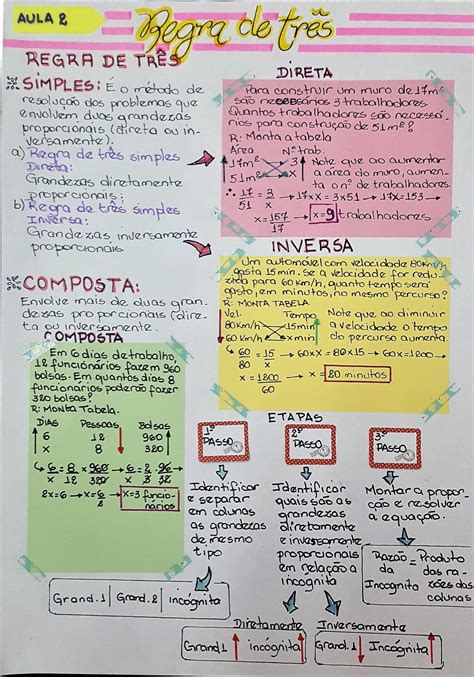 AULA 2
Regra de três
REGRA DE TRÊS
SIMPLES: É o método de
resolução dos problemas que
envolvem duas grandezas
proporcionais (direta ou in-
versamente).
a) Regra de três simples
Direta:
Grandezas diretamente
proporcionais;
b) Regra de três simples
Inversa:
Grandezas inversamente
proporcionais
COMPOSTA:
Envolve mais de duas gran-
dezas proporcionais (dire-
ta ou inversamente.
COMPOSTA
Em 6 dias de trabalho,
12 funcionários fazem 960
bolsas. Em quantos dias 8
funcionários poderão fazer
320 bolsas?
R: Monta Tabela.
DIAS Pessoas Bolsas
6 12 960
x 8 320
6 = 8 x 960 → 6 = 2 . 96
x 12 320 x 3 32
2x=6 → x=6 → x=3 funcio-
2 nários
DIRETA
Para construir um muro de 17m²
são necessários 3 trabalhadores
Quantos trabalhadores são necessá-
rios para construção de 51m²?
R: Monta a tabela
Área N° trab.
17m² 3
51m² x
Note que ao aumentar
a área do muro, aumen-
ta o n° de trabalhadores
∴ 17 = 3 → 17x = 3x51 → 17x=153
51 x
x=157 → x=9 trabalhadores
17
INVERSA
Um automóvel com velocidade 80km/h
gasta 15 min. Se a velocidade for redu-
zida para 60 km/h, quanto tempo será
gasto, em minutos, no mesmo percurso?
R: MONTA TABELA
Vel. Tempo
80km/h 15min
60 km/h x
Note que ao diminuir
a velocidade o tempo
do percurso aumenta.
60 = 15 → 60xX = 80x15 → 60x=1200
80 x
x = 1200 → x = 80 minutos
60
ETAPAS
1º PASSO
2º PASSO
3º PASSO
Identificar
e separar
em colunas
as grandezas
de mesmo
tipo
Identificar
quais são as
grandezas
diretamente
e inversamente
proporcionais
em relação a
incógnita
Montar a propor-
ção e resolver
a equação.
Razão = Produto
da das ra-
Incógnita zões das
colunas
Grand. 1 Grand. 2 incógnita
Diretamente Inversamente
Grand.1 incógnita Grand.1 Incógnita